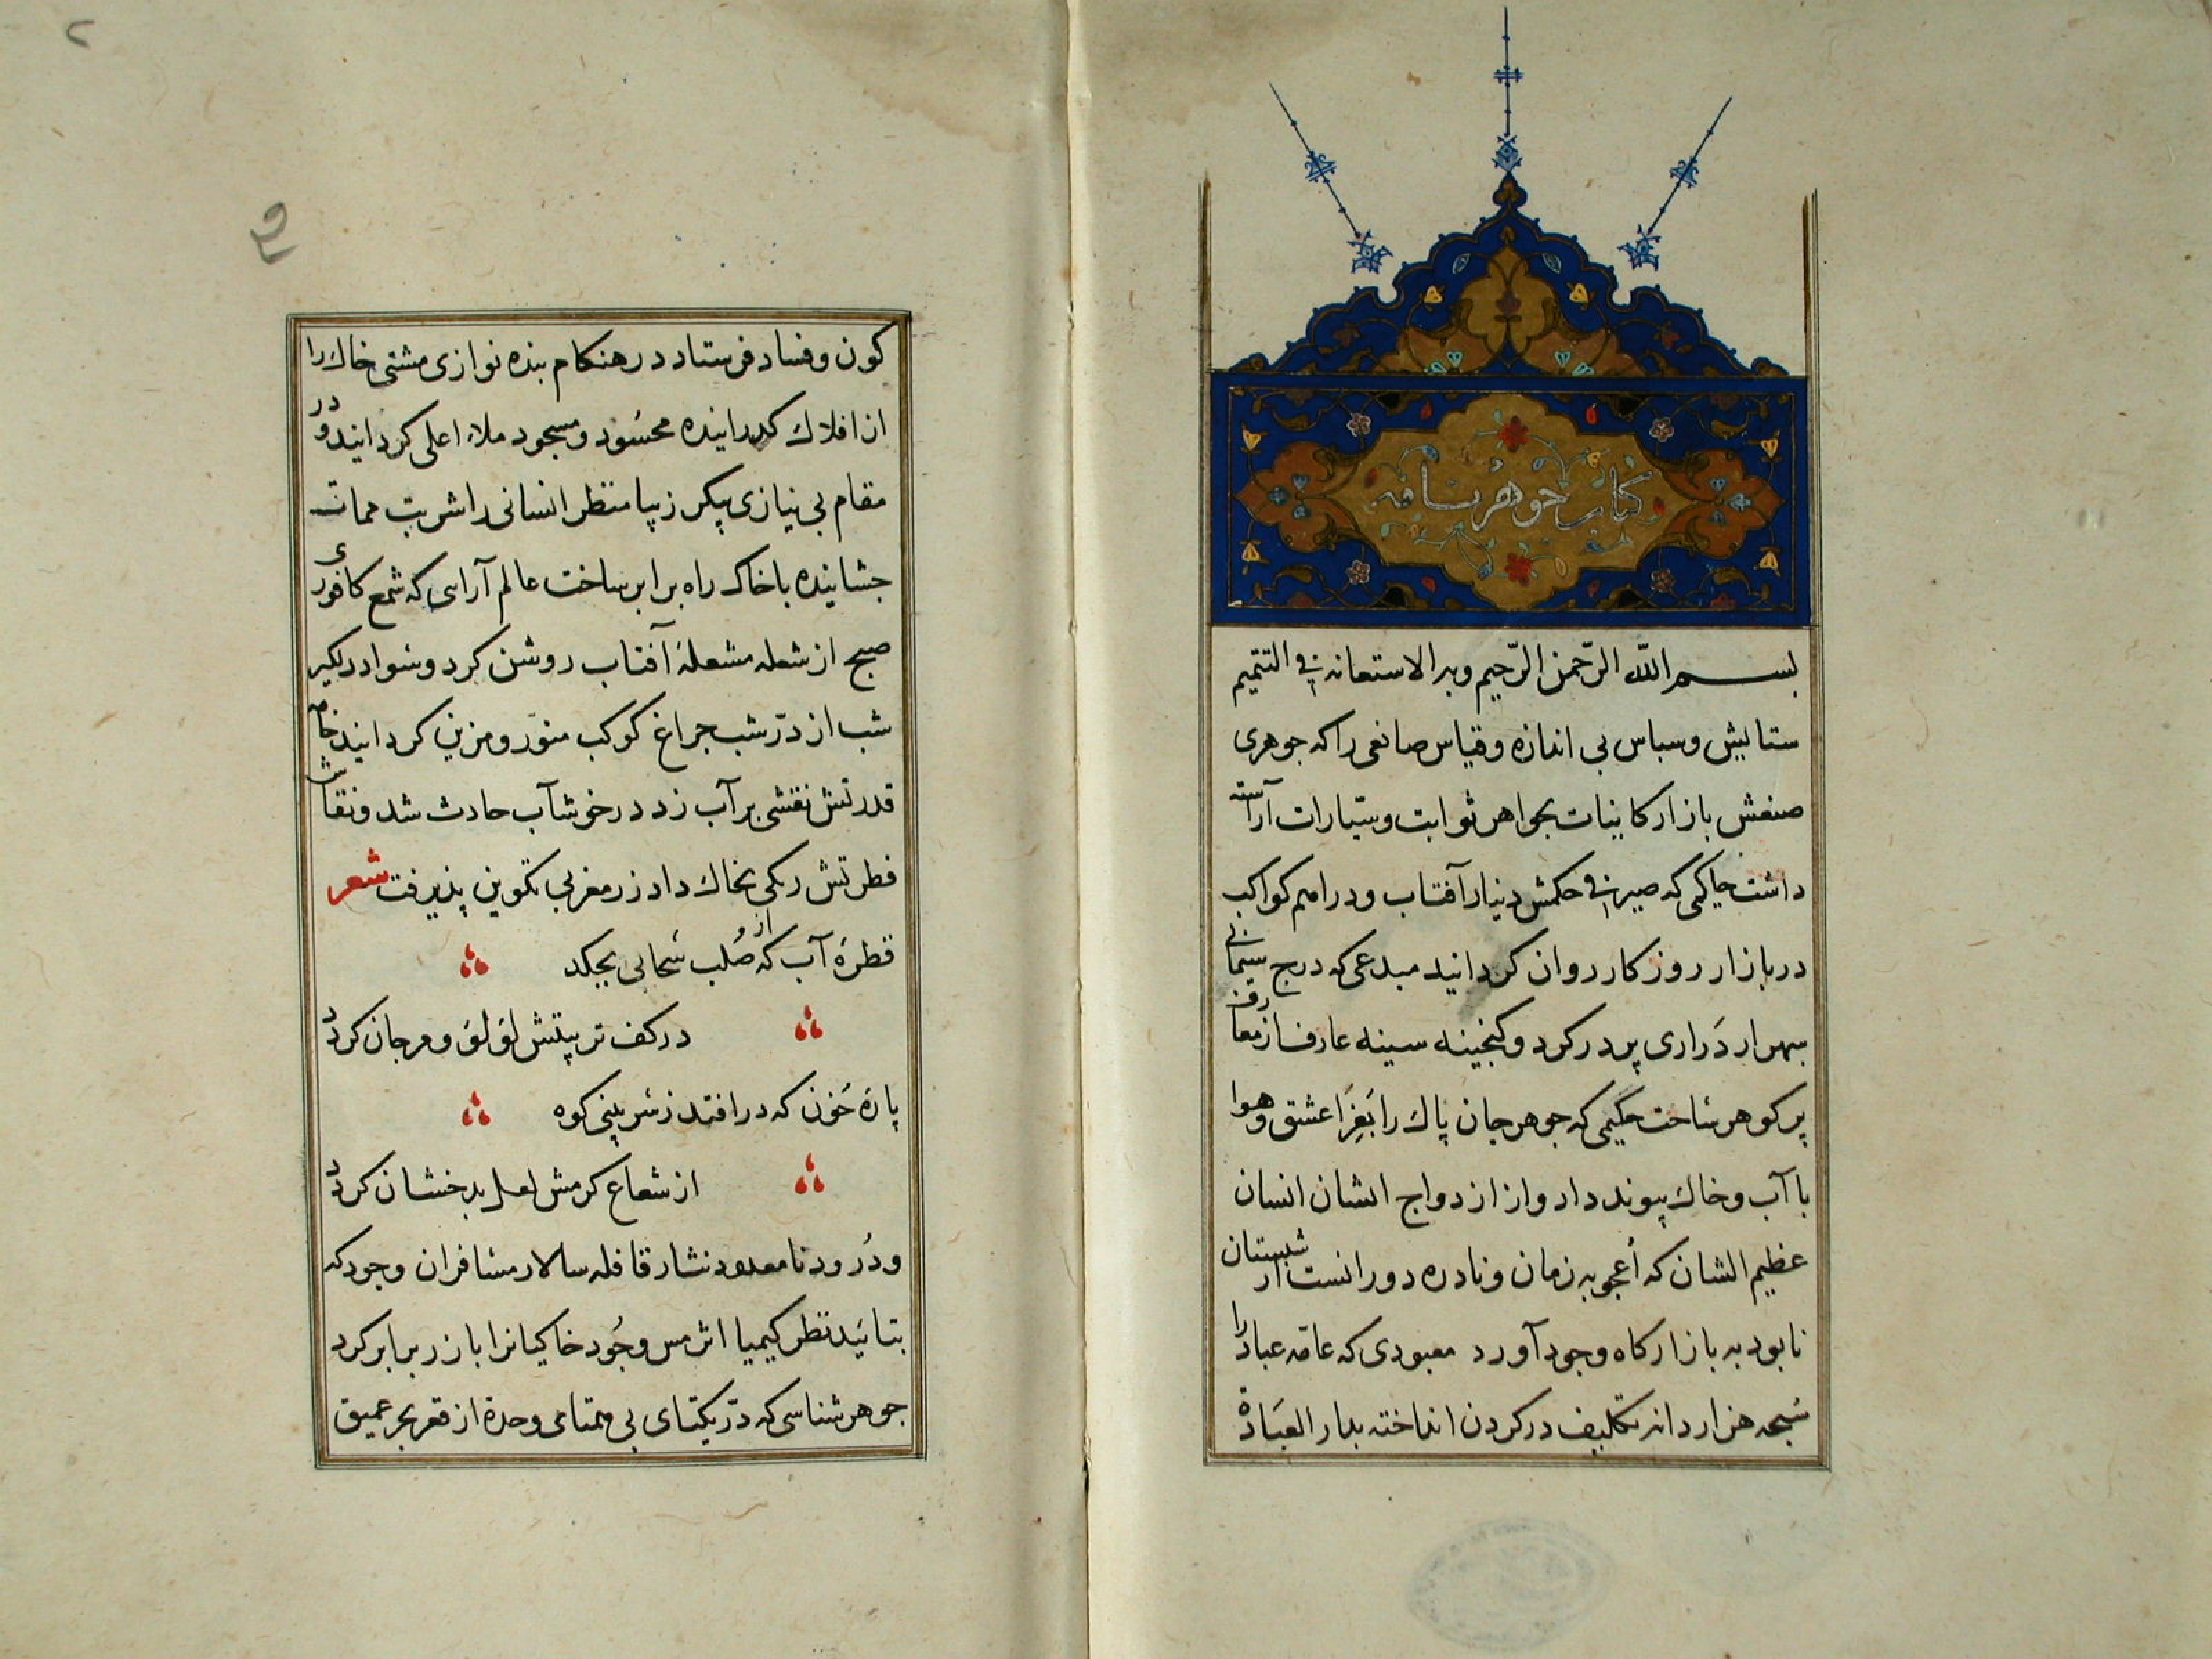 کتاب جوهر نامه
بسم الله الرّحمن الرّحیم وبه الاستعانه فی التتمیم
ستایش وسباس بی اندازه وقیاس صانعی راکه جوهری
صنعش بازار کاینات بجواهر ثوابت وسیّارات آراسته
داشت حاکمی که صیرفی حکمش دینار آفتاب ودراهم کواکب
دربازار روزکار روان کردانید مبدعی که درج
دَراری پر در کرد وکنجینه سینه عارف از معارف
پر کوهر ساخت حکیمی که جوهر جان پاك را عشق وهوا
با آب وخاك پیوند داد واز ازدواج انسان
عظیم الشان که اُعجوبه زمان ونادره دورانست از شبستان
نابود به بازارکاه وجود آورد معبودی که عامّه عباد را
سُبحه هزار دانه تکلیف در کردن انداخته بدار العبادة
کون وفساد فرستاد در هنکام بنده نوازی مشتی خاك را
از افلاك کدرانیده محسُود ومسجود ملاء اعلی کردانید ودر
مقام بی نیازی پیکر زیبا منظر انسانی را شربت ممات
جشانیده باخاك راه برابر ساخت عالم آرایی که شمع کافوری
صبح از شعله مشعلهٔ آفتاب روشن کرد وسواد دلکیر
شب از درّ شب جراغ کوکب منوّر ومزین کردانید خامه
قدرتش نقشی بر آب زد در خوشاب حادث شد ونقاش
فطرتش رنکی بخاك داد زر مغربی تکوین پذیرفت شعر
قطرهٔ آب که از صُلب سَحابی بجکد
در کف تربیتش لؤلؤ ومرجان کردد
پارهٔ خون که در افتد ز کوه
از شعاع کرمش لعل بدخشان کردد
ودُرود نامعدود نثار قافله سالار مسافران وجود که
بتائید نظر کیمیا اثر مس وجُود خاکیانرا باز زر برابر کرد
جوهر شناسی که درّ یکتای بی همتای وحدة از قعر بحر عمیق